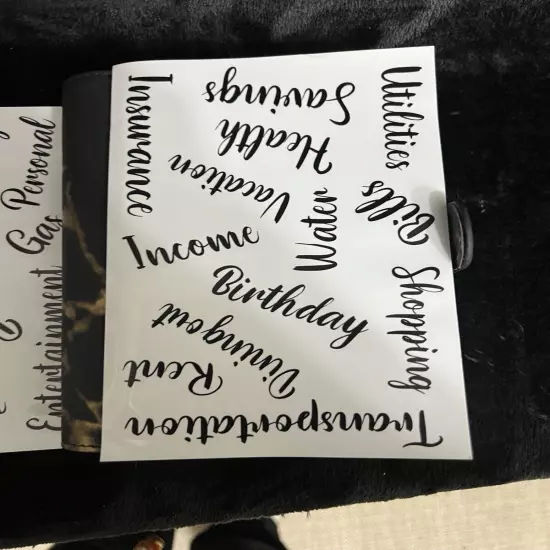 Personal
Gas
Entertainment
Insurance
Savings
Utilities
Health
Vacation
Bills
Water
Income
Birthday
Shopping
Dining out
Rent
Transportation